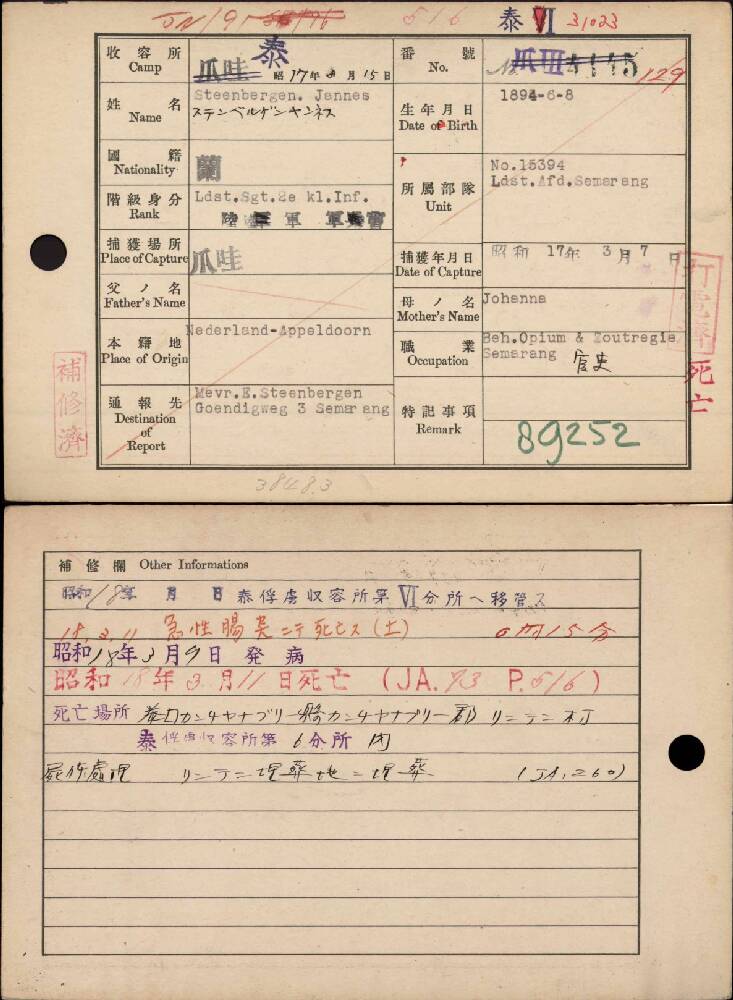 516 泰 VI 31023
收容所 Camp 爪哇 泰 昭 17年 8月 15日
番號 No. 爪III 4145 129
姓名 Name Steenbergen. Jannes
ステンベルゲンヤンネス
生年月日 Date of Birth 1894-6-8
國籍 Nationality 蘭
階級身分 Rank Ldst.Sgt.2e kl.Inf.
所屬部隊 Unit No.15394
Ldst.Afd.Semarang
捕獲場所 Place of Capture 爪哇
捕獲年月日 Date of Capture 昭和 17年 3月 7日
父ノ名 Father's Name
母ノ名 Mother's Name Johanna
本籍地 Place of Origin Nederland-Appeldoorn
職業 Occupation Beh.Opium & Zoutregie
Semarang 官吏
通報先 Destination of Report Mevr.E.Steenbergen
Goendigweg 3 Semarang
特記事項 Remark 89252
補修濟
打電濟
死亡
38483
補修欄 Other Informations
昭和18年 月 日 泰俘虜収容所第VI分所ヘ移管ス
18.3.11 急性腸炎ニテ死亡ス(土)
昭和18年3月9日 発病
昭和18年3月11日死亡 (JA.73 P.516)
死亡場所 カンチヤナブリー県カンチヤナブリー郡 リンテン村
泰俘虜収容所第6分所内
屍体處理 リンテン埋葬地ニ埋葬 (JA,260)